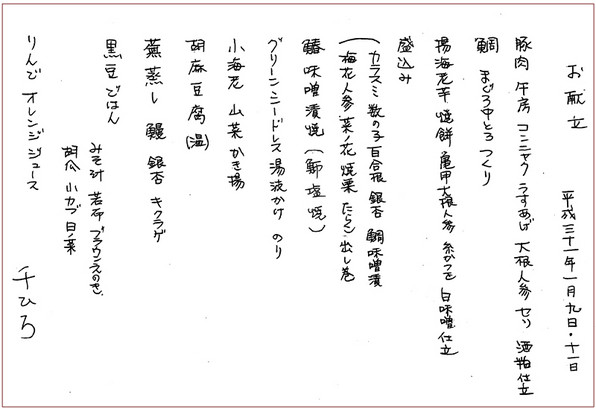 お献立
平成三十一年一月九日・十一日
豚肉 牛房 コンニャク うすあげ 大根 人参 セリ 酒粕仕立
鯛 まぐろ中とろ つくり
揚海老芋 焼餅 亀甲大根人参 糸かつを 白味噌仕立
盛込み
(カラスミ 数の子 百合根 銀杏 鯛味噌漬
梅花人参 菜ノ花 焼栗 たらこ 出し巻
鰆味噌漬焼(鰤塩焼)
グリーンニードレス湯波かけ のり
小海老 山菜かき揚
胡麻豆腐(温)
蕪蒸し 鰻 銀杏 キクラゲ
黒豆ごはん
みそ汁 若布 ブラウンえのき
胡瓜 小カブ 日ノ菜
りんご オレンジジュース
千ひろ